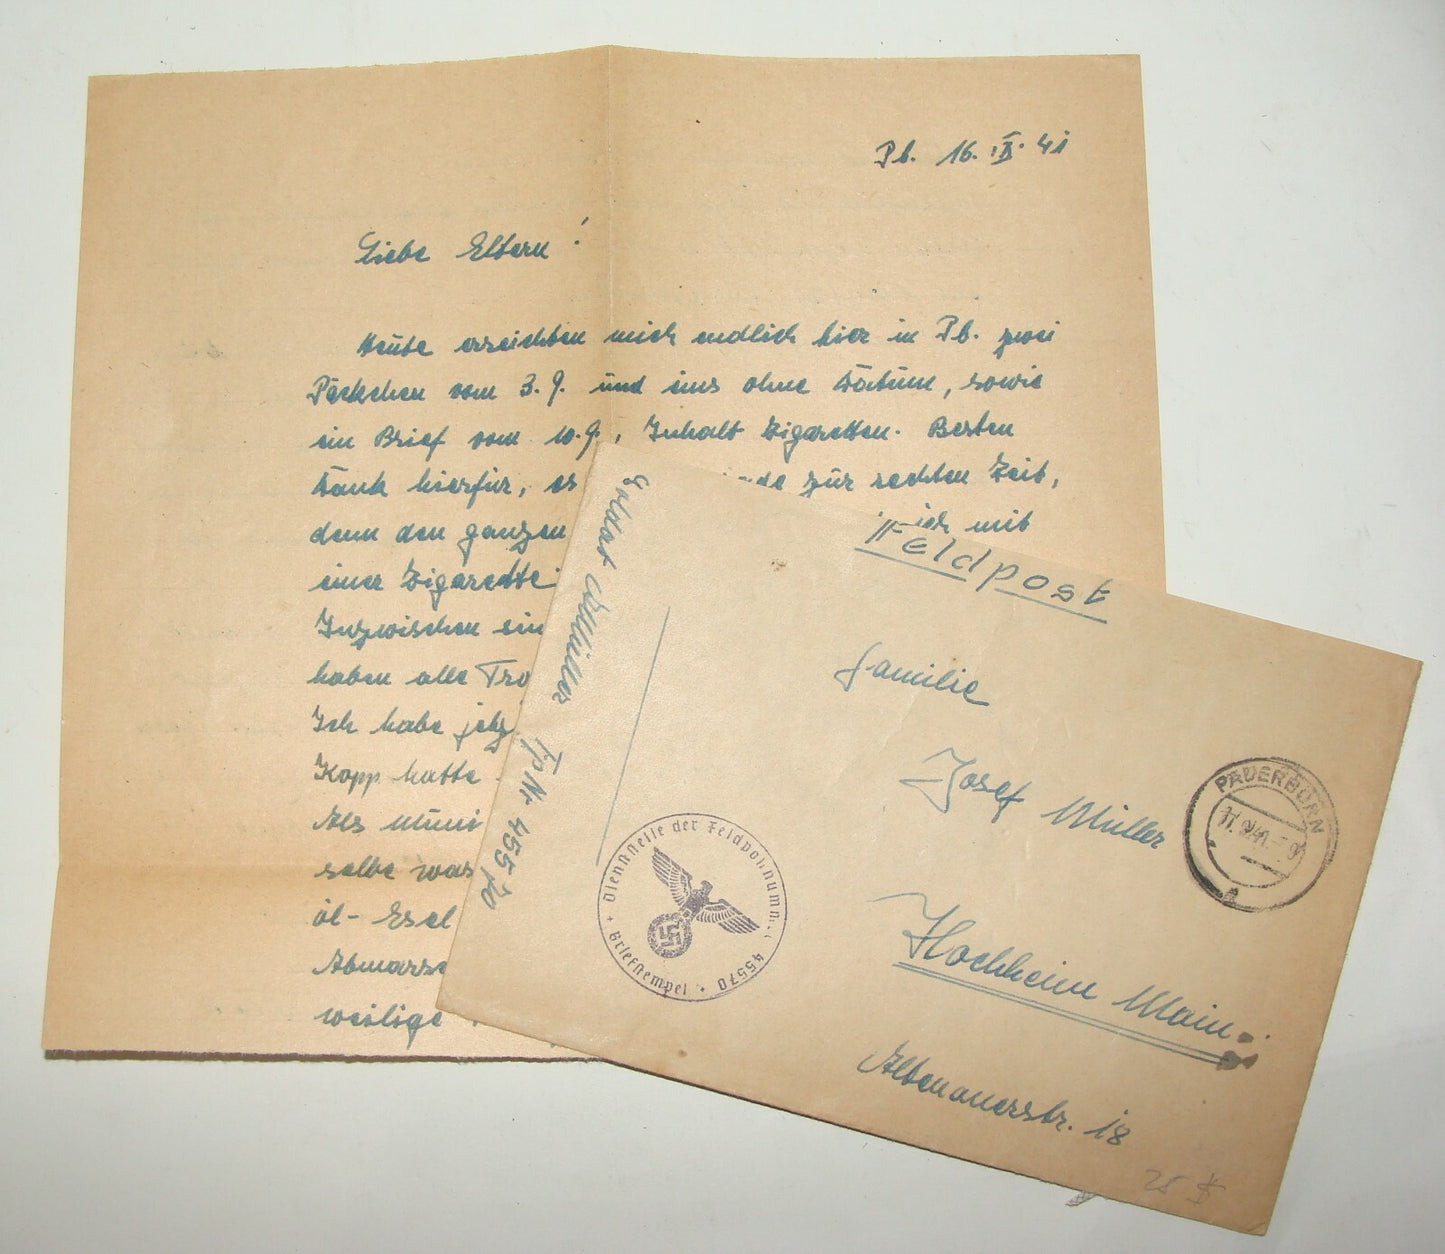 Pb. 16. IX. 41
Liebe Eltern!
Heute erreichten mich endlich hier in Pb. zwei
Päckchen vom 3. 9. und eins ohne Datum, sowie
ein Brief vom 10. 9., Inhalt Zigaretten. Besten
Dank hierfür, es zur rechten Zeit,
denn den ganzen ich mit
einer Zigarette
Inzwischen ein
haben alle Tro
Ich habe jetz
Kopp hatte
Als Muni
selbe was
öl-Esel
Abmarsc
weilige
Soldat Müller FpNr 45570
Feldpost
Familie
Josef Müller
Hochheim Main.
Altenauerstr. 18
PADERBORN
Dienststelle der Feldpostnumm. 45570
Briefstempel
25 $